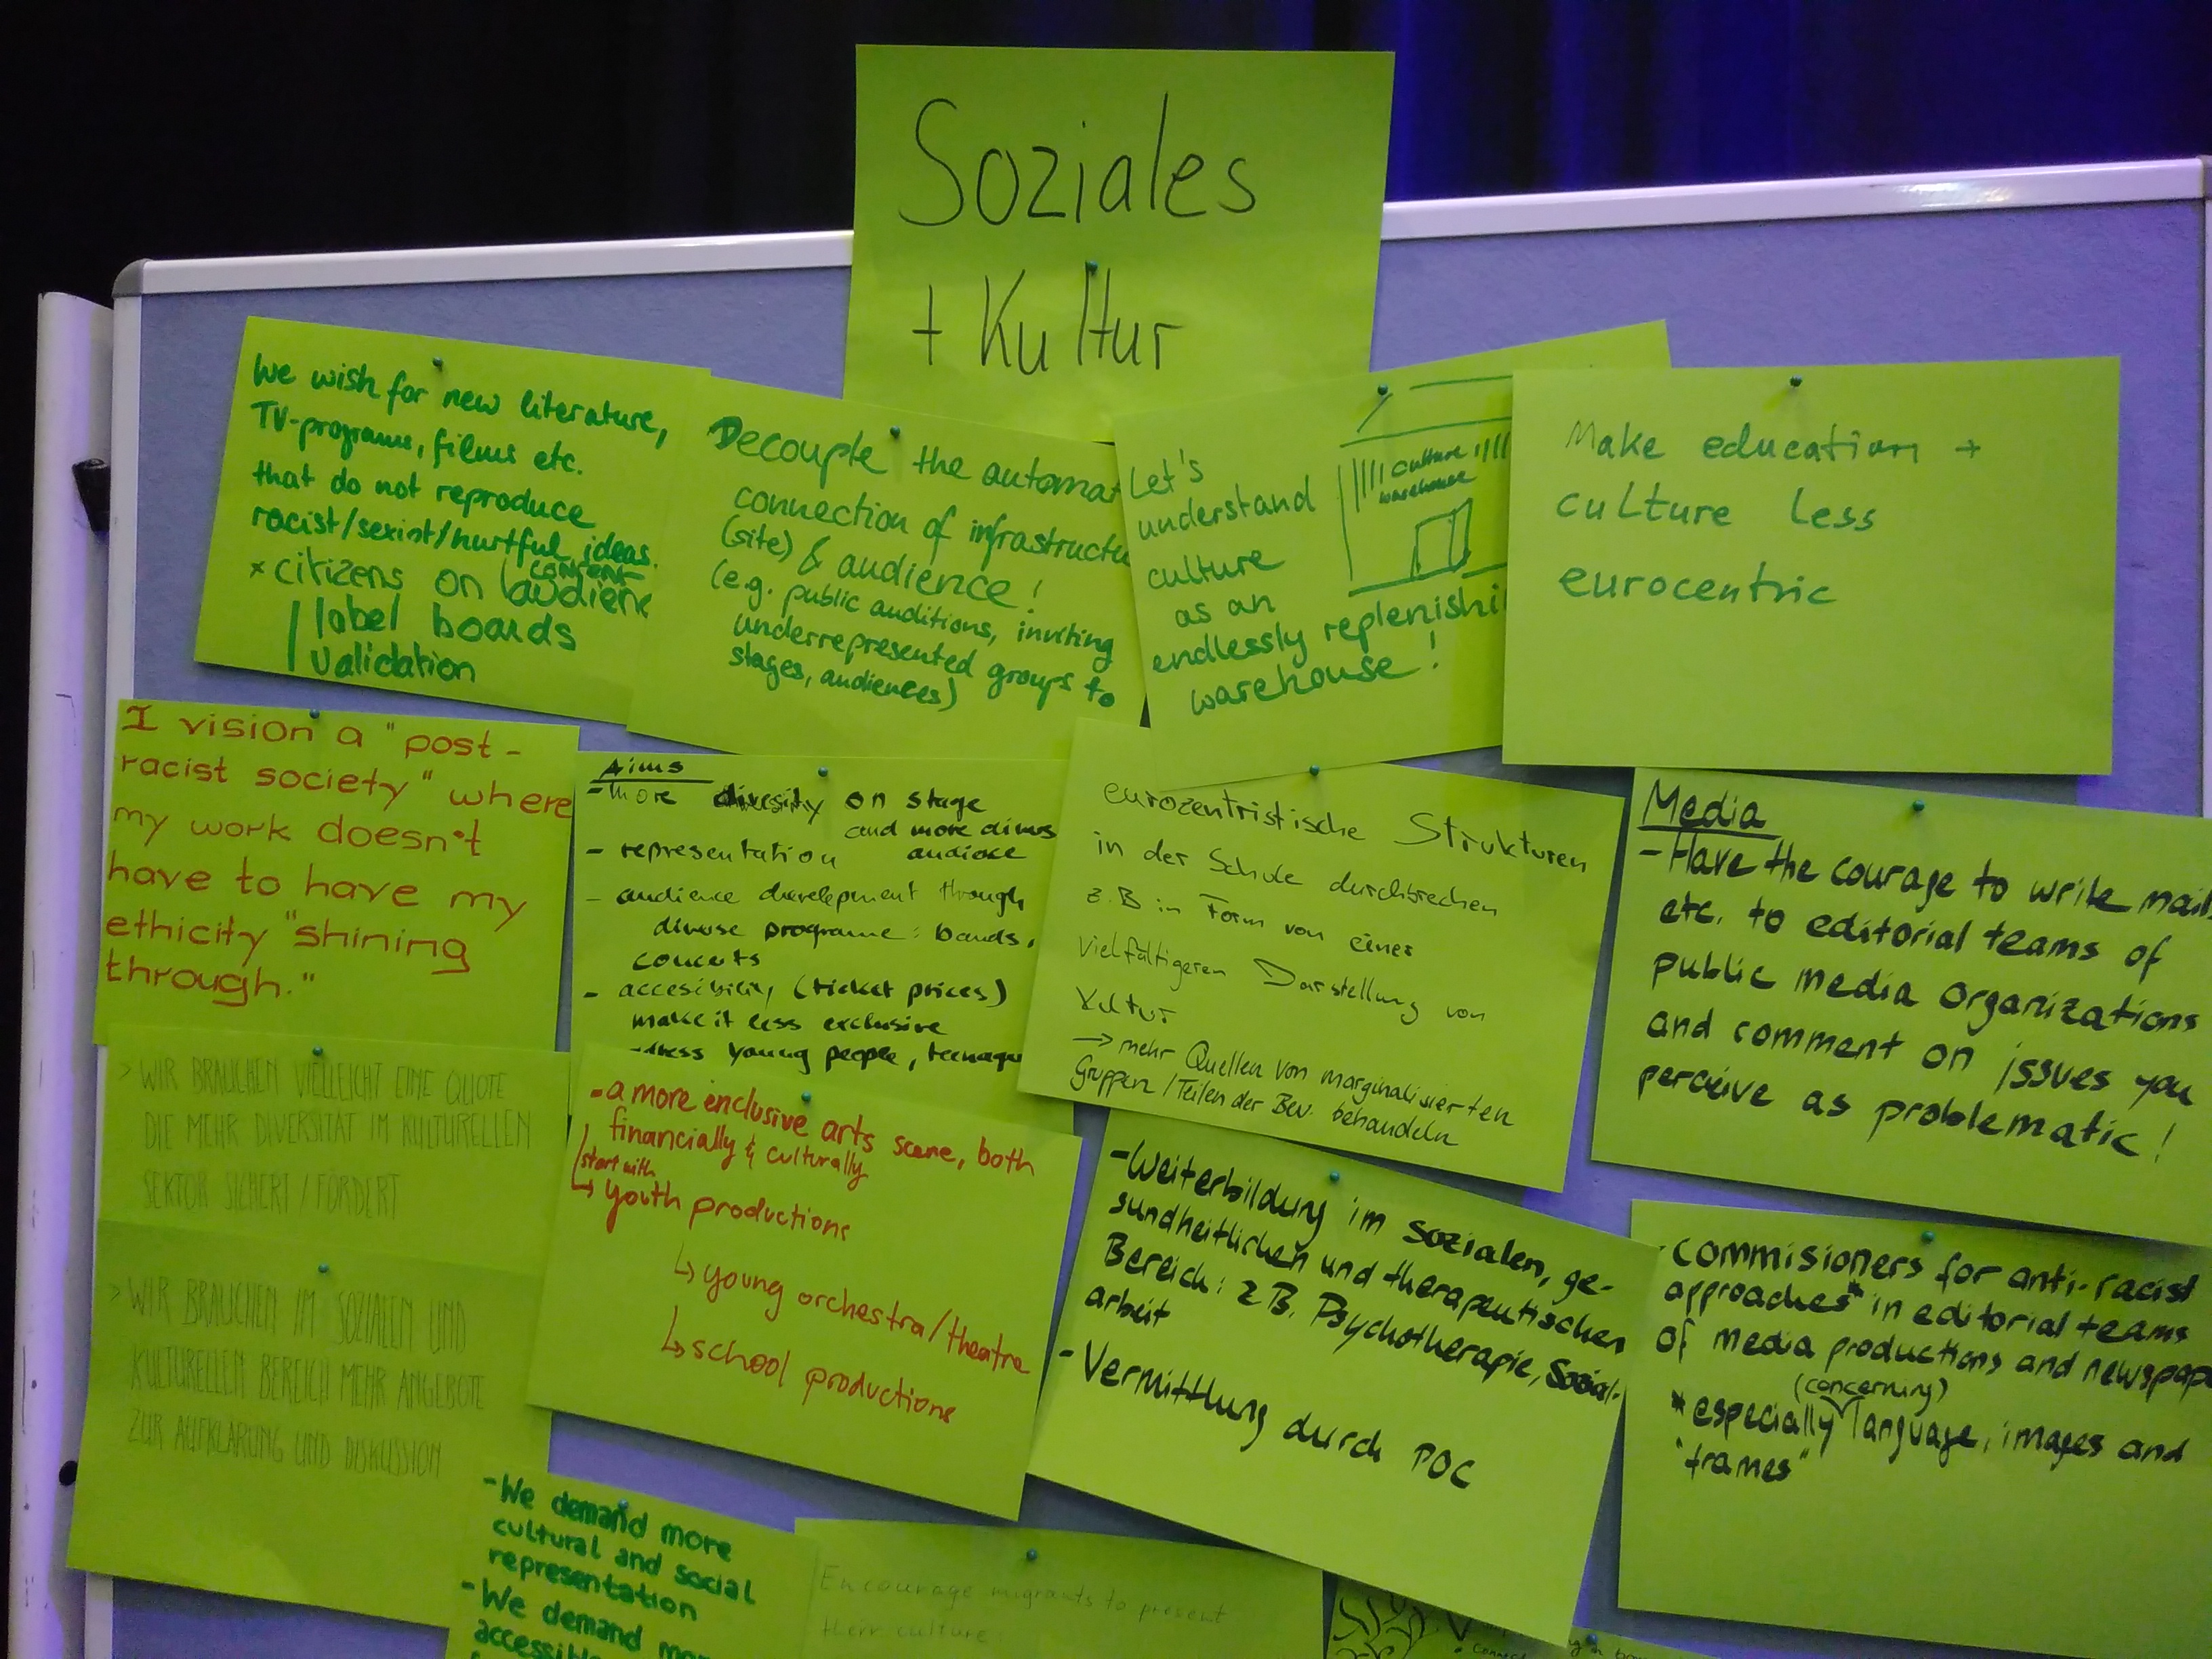 Soziales
+ Kultur
We wish for new literature,
TV-programs, films etc.
that do not reproduce
racist/sexist/hurtful ideas.
* citizens on content
audienc
label boards
validation
Decouple the automat
connection of infrastructu
(site) & audience!
(e.g. public auditions, inviting
underrepresented groups to
stages, audiences)
Let's
understand
culture
as an
endlessly replenishi
warehouse!
culture
warehouse
Make education +
culture less
eurocentric
I vision a "post-
racist society" where
my work doesn't
have to have my
ethicity "shining
through."
Aims
- more diversity on stage
and more divers
audiece
- representation
- audience development through
diverse programe: bands,
concerts
- accesibility (ticket prices)
make it less exclusive
young people, teenage
eurozentristische Strukturen
in der Schule durchbrechen
z.B in Form von einer
vielfältigeren Darstellung von
Kultur
→ mehr Quellen von marginalisierten
Gruppen / Teilen der Bev. behandeln
Media
- Have the courage to write mail
etc. to editorial teams of
public media organizations
and comment on issues you
perceive as problematic!
> WIR BRAUCHEN VIELLEICHT EINE QUOTE
DIE MEHR DIVERSITÄT IM KULTURELLEN
SEKTOR SICHERT / FÖRDERT
- a more inclusive arts scene, both
financially & culturally
start with
↳ youth productions
↳ young orchestra/theatre
↳ school productions
- Weiterbildung im sozialen, ge-
sundheitlichen und therapeutischen
Bereich: z.B. Psychotherapie, Sozial-
arbeit
- Vermittlung durch POC
- commisioners for anti-racist
approaches* in editorial teams
of media productions and newspape
(concerning)
* especially language, images and
"frames"
> WIR BRAUCHEN IM SOZIALEN UND
KULTURELLEN BEREICH MEHR ANGEBOTE
ZUR AUFKLÄRUNG UND DISKUSSION
- We demand more
cultural and social
representation
- We demand mo
accessibl
Encourage migrants to present
their culture